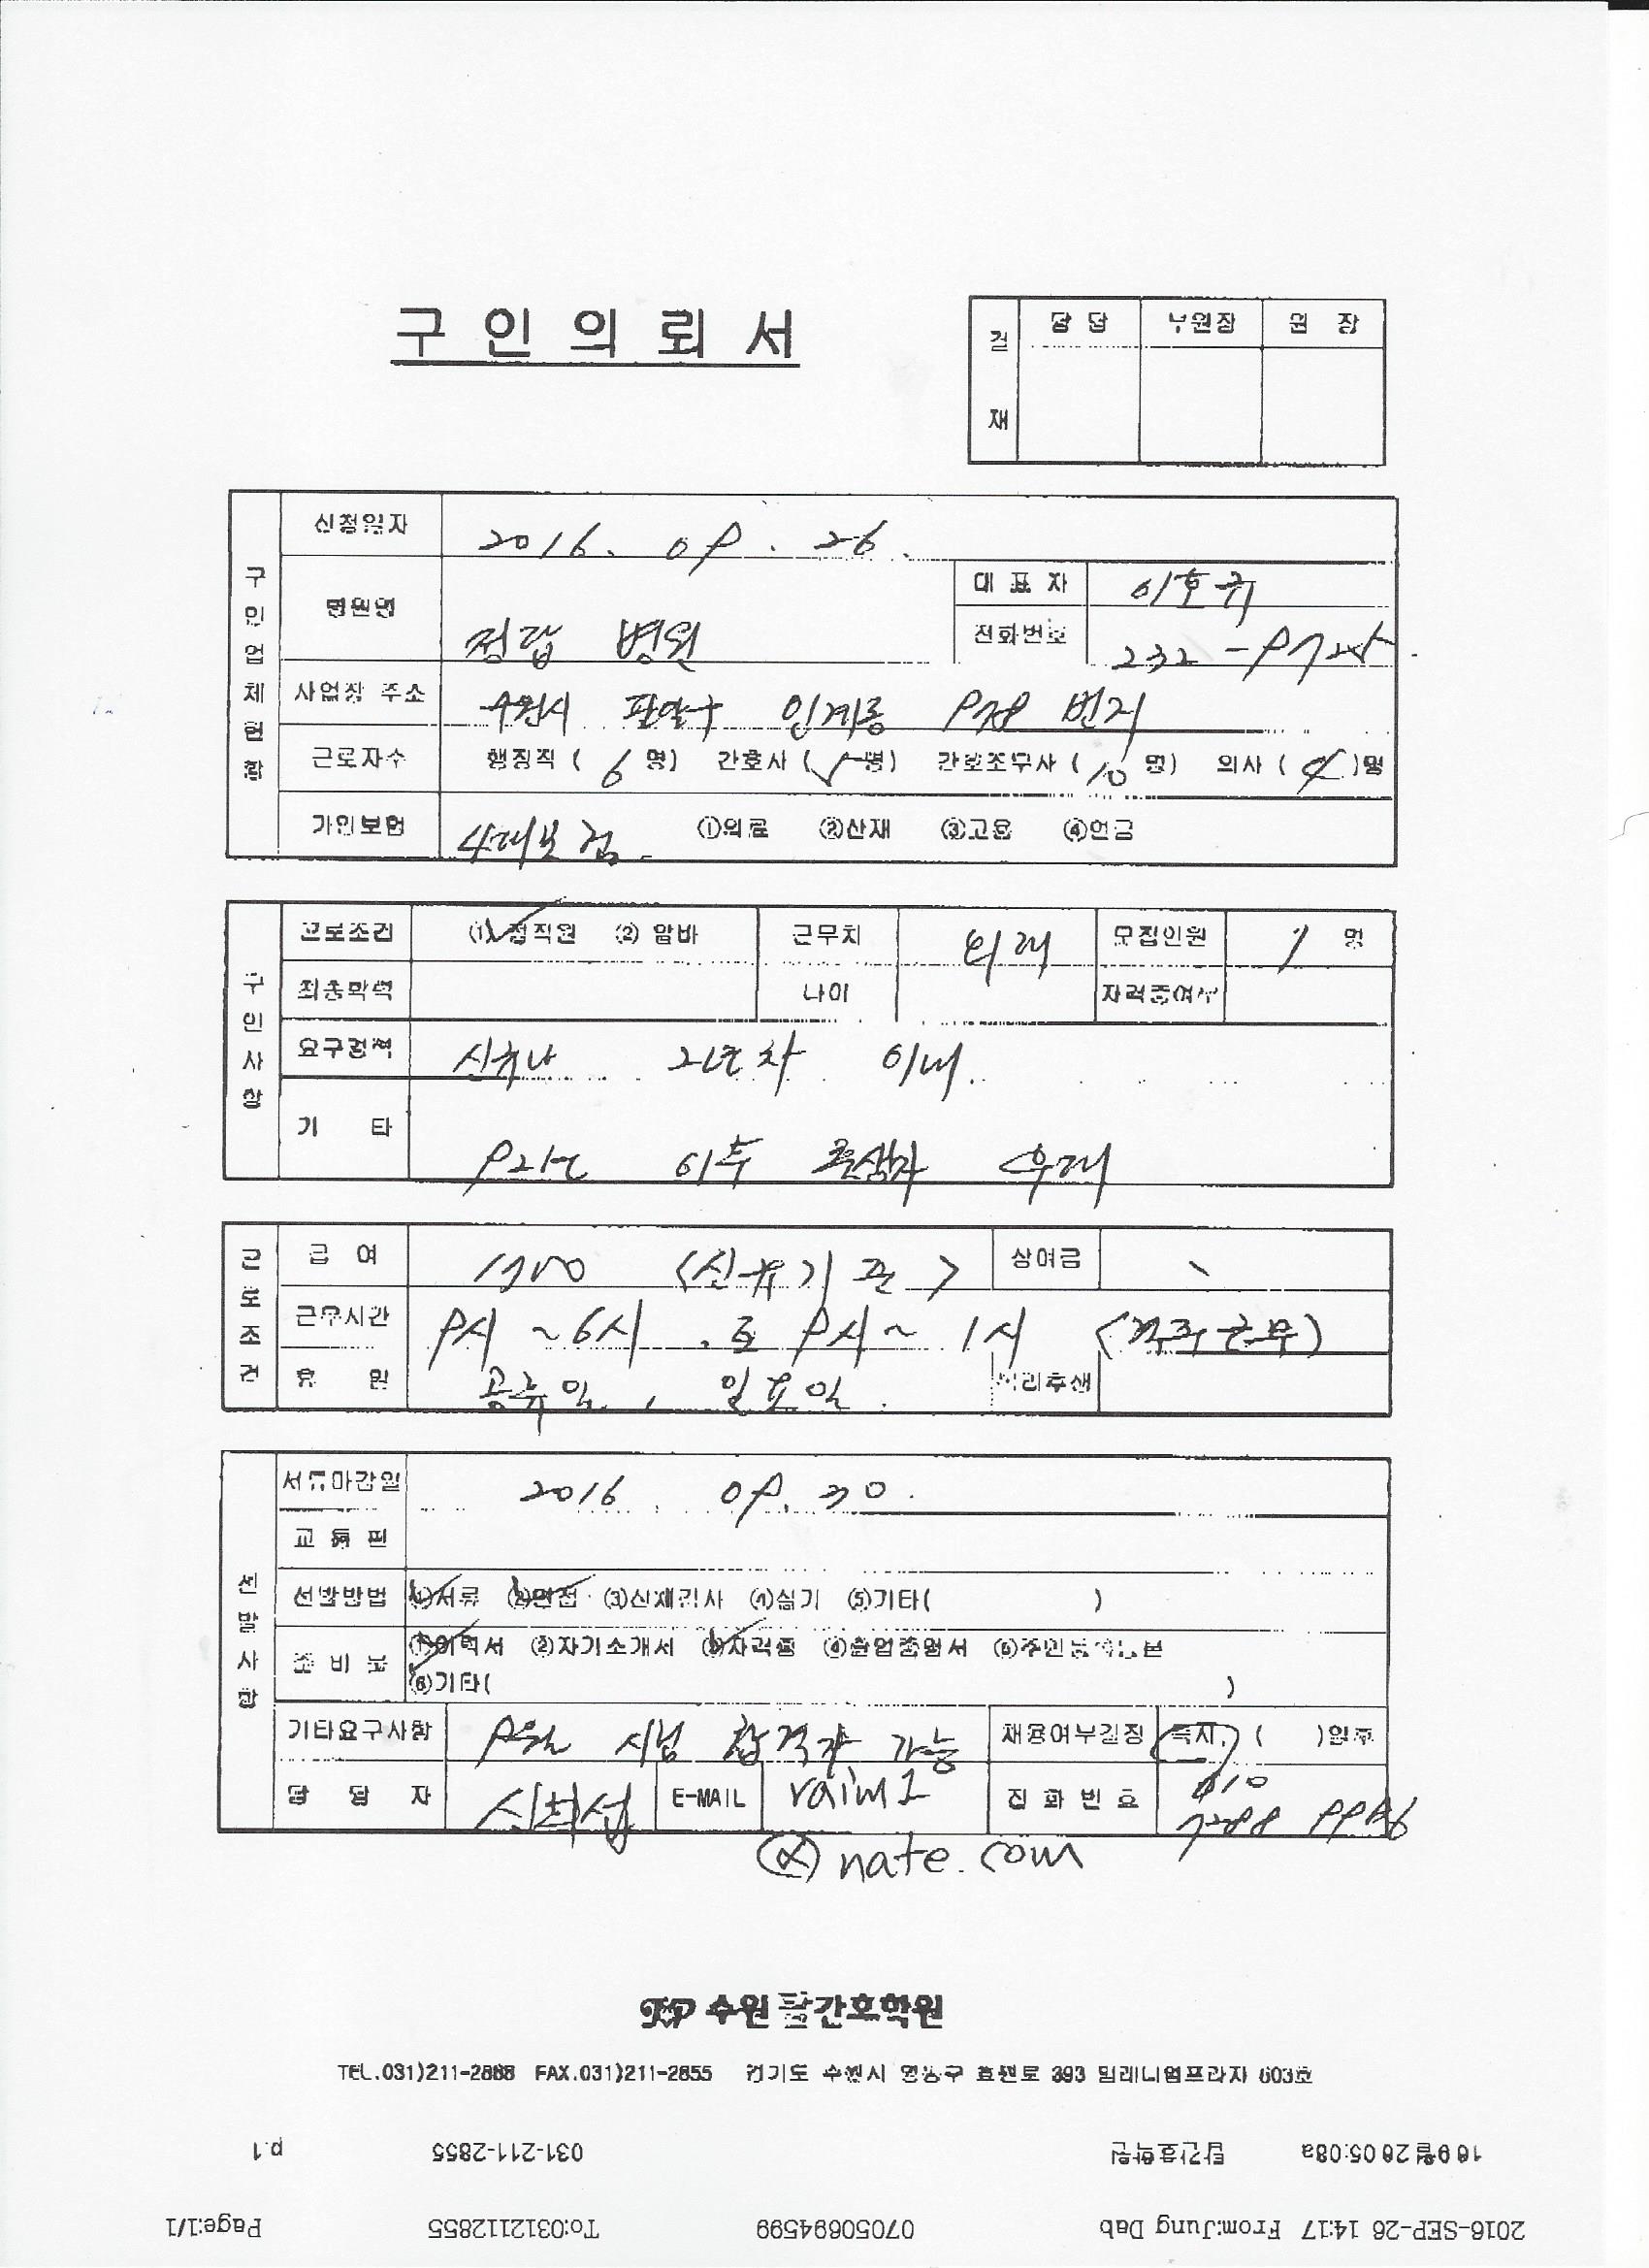 구 인 의 뢰 서
결 재
담 당 부원장 원 장
구 인 업 체 현 황
신청일자 2016. 09. 26.
병원명 정답 병원
대 표 자 이호귀
전화번호 232-9725
사업장 주소 수원시 팔달구 인계동 번지
근로자수 행정직 ( 6 명) 간호사 ( 5 명) 간호조무사 ( 10 명) 의사 ( 4 )명
가입보험 4대보험. ①의료 ②산재 ③고용 ④연금
구 인 사 항
근로조건 (1) 정직원 (2) 알바 근무처 외래 모집인원 1 명
최종학력 나이 자격증여부
요구경력 신규나 2년차 이내.
기 타 92년 이후 출생자 우대
근 로 조 건
급 여 1750 (신규기준) 상여금 \
근무시간 9시 ~ 6시 . 토 9시 ~ 1시 (격주근무)
휴 일 공휴일, 일요일. 복리후생
선 발 사 항
서류마감일 2016. 09. 30.
교 통 편
선발방법 ①서류 ②면접 ③신체검사 ④실기 ⑤기타( )
준 비 물 ①이력서 ②자기소개서 ③자격증 ④졸업증명서 ⑤주민등록등본
⑥기타( )
기타요구사항 9월 시험 합격자 가능 채용여부결정 즉시, ( )일후
담 당 자 신희섭 E-MAIL raim1 전 화 번 호 010
7288 9986
@nate.com
수원탑간호학원
TEL.031)211-2888 FAX.031)211-2855 경기도 수원시 영통구 효원로 393 밀레니엄프라자 603호
16 9월 26 05:08a 탑간호학원 031-211-2855 p.1
2016-SEP-26 14:17 From:Jung Dab 07050694599 To:0312112855 Page:1/1